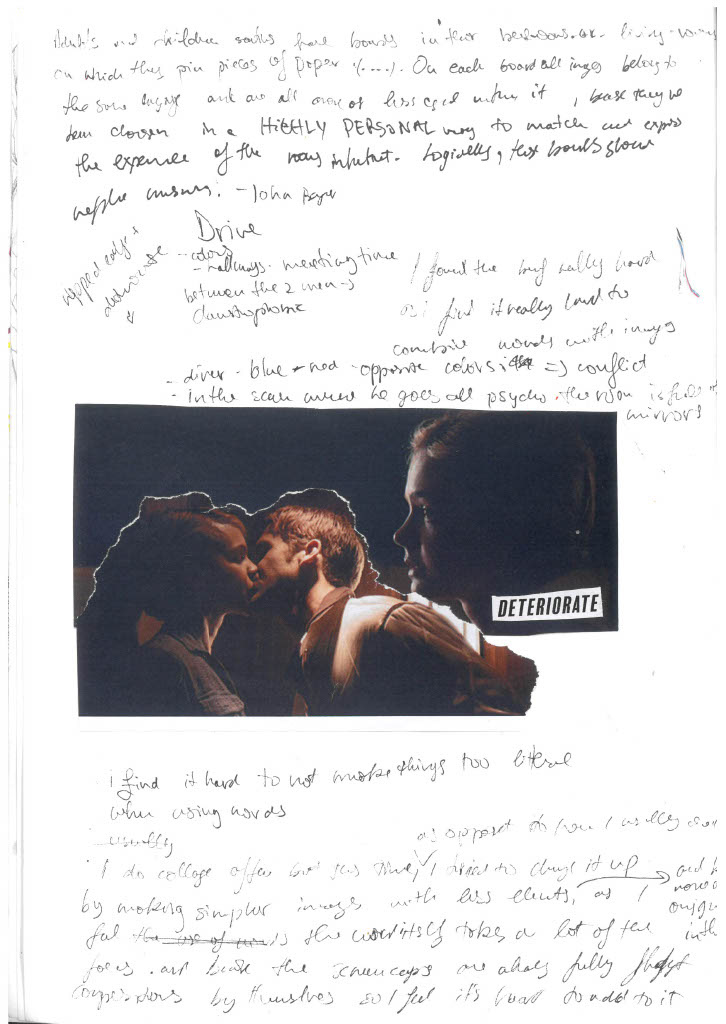 and children sometimes have boards in their bedrooms or living-rooms
on which they pin pieces of paper (....). On each board all images belong to
the same and are all more or less equal within it, they've
been chosen in a HIGHLY PERSONAL way to match and express
the experience of the rooms inhabitant. Logically, these boards should
replace museums. - John
Drive
ripped edges +
- colors
- hallways - meeting time
between the 2 men ->
claustrophobic
I found the brief really hard
I find it really hard to
combine words with images
- driver - blue + red - opposite colors => conflict
- In the scene where he goes all psycho the room is full of
mirrors
DETERIORATE
I find it hard to not make things too literal
when using words
usually
as opposed to how I usually
I do collage often but this time, I tried to change it up
by making simpler images with less elements, as I
feel the use of is the word itself takes a lot of the
focus and the screencaps are already fully
compositions by themselves so I feel it's hard to add to it